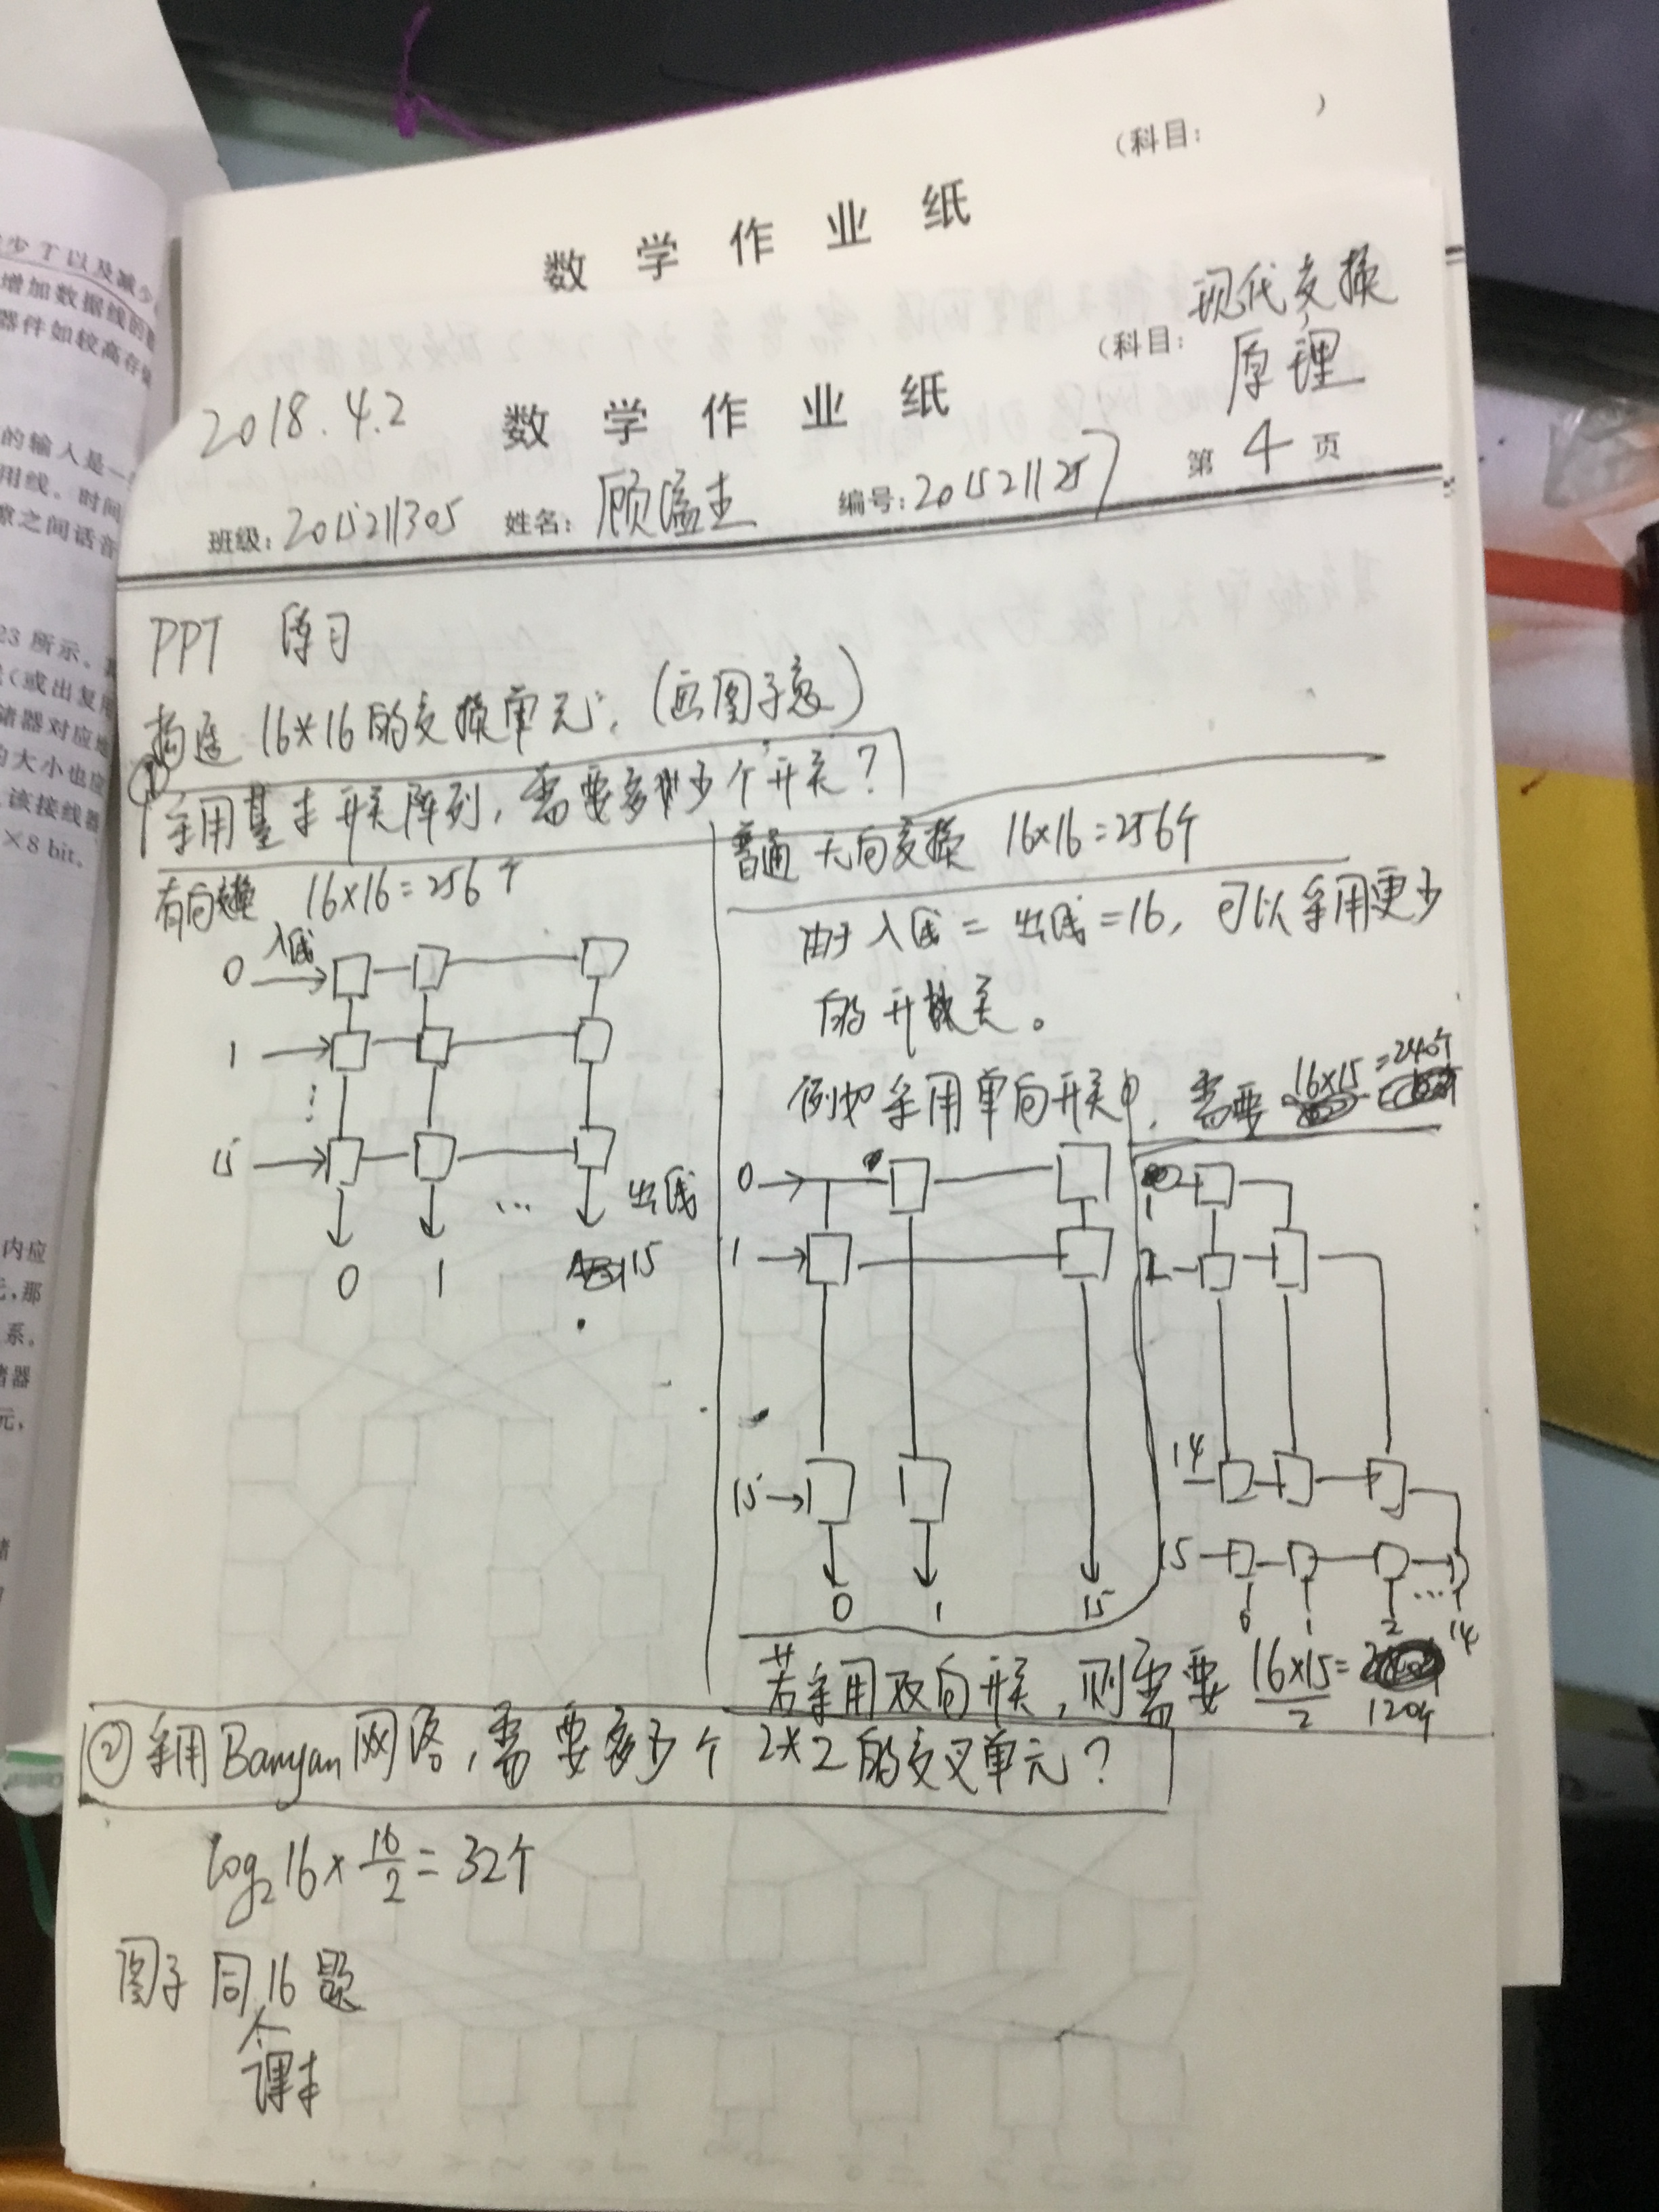 少 T 以及减少
增加数据线的
器件如较高存
的输入是一
用线。时间
隙之间话音
23 所示。
(或出复用
储器对应地
的大小也应
该接线器
×8 bit。
内应
元,那
系。
储器
元,
(科目: )
数 学 作 业 纸
(科目: 现代交换
原理
2018.4.2 数 学 作 业 纸
班级: 2015211305 姓名: 顾溢杰 编号: 2015211257 第 4 页
PPT 练习
构造 16×16的交换单元: (画图示意)
① 采用基本开关阵列,需要多少个开关?
有向交换 16×16=256个
入线
0
1
⋮
15
出线
0 1 … 15
普通 无向交换 16×16=256个
由于入线=出线=16, 可以采用更少
的开关。
例如采用单向开关, 需要 16×15=240个
0
1
15
0 1 15
1
2
14
15
0 1 2 … 14
若采用双向开关,则需要 16×15/2 = 120个
② 采用Banyan网络,需要多少个 2×2的交叉单元?
log₂16×16/2=32个
图子同16题
课本